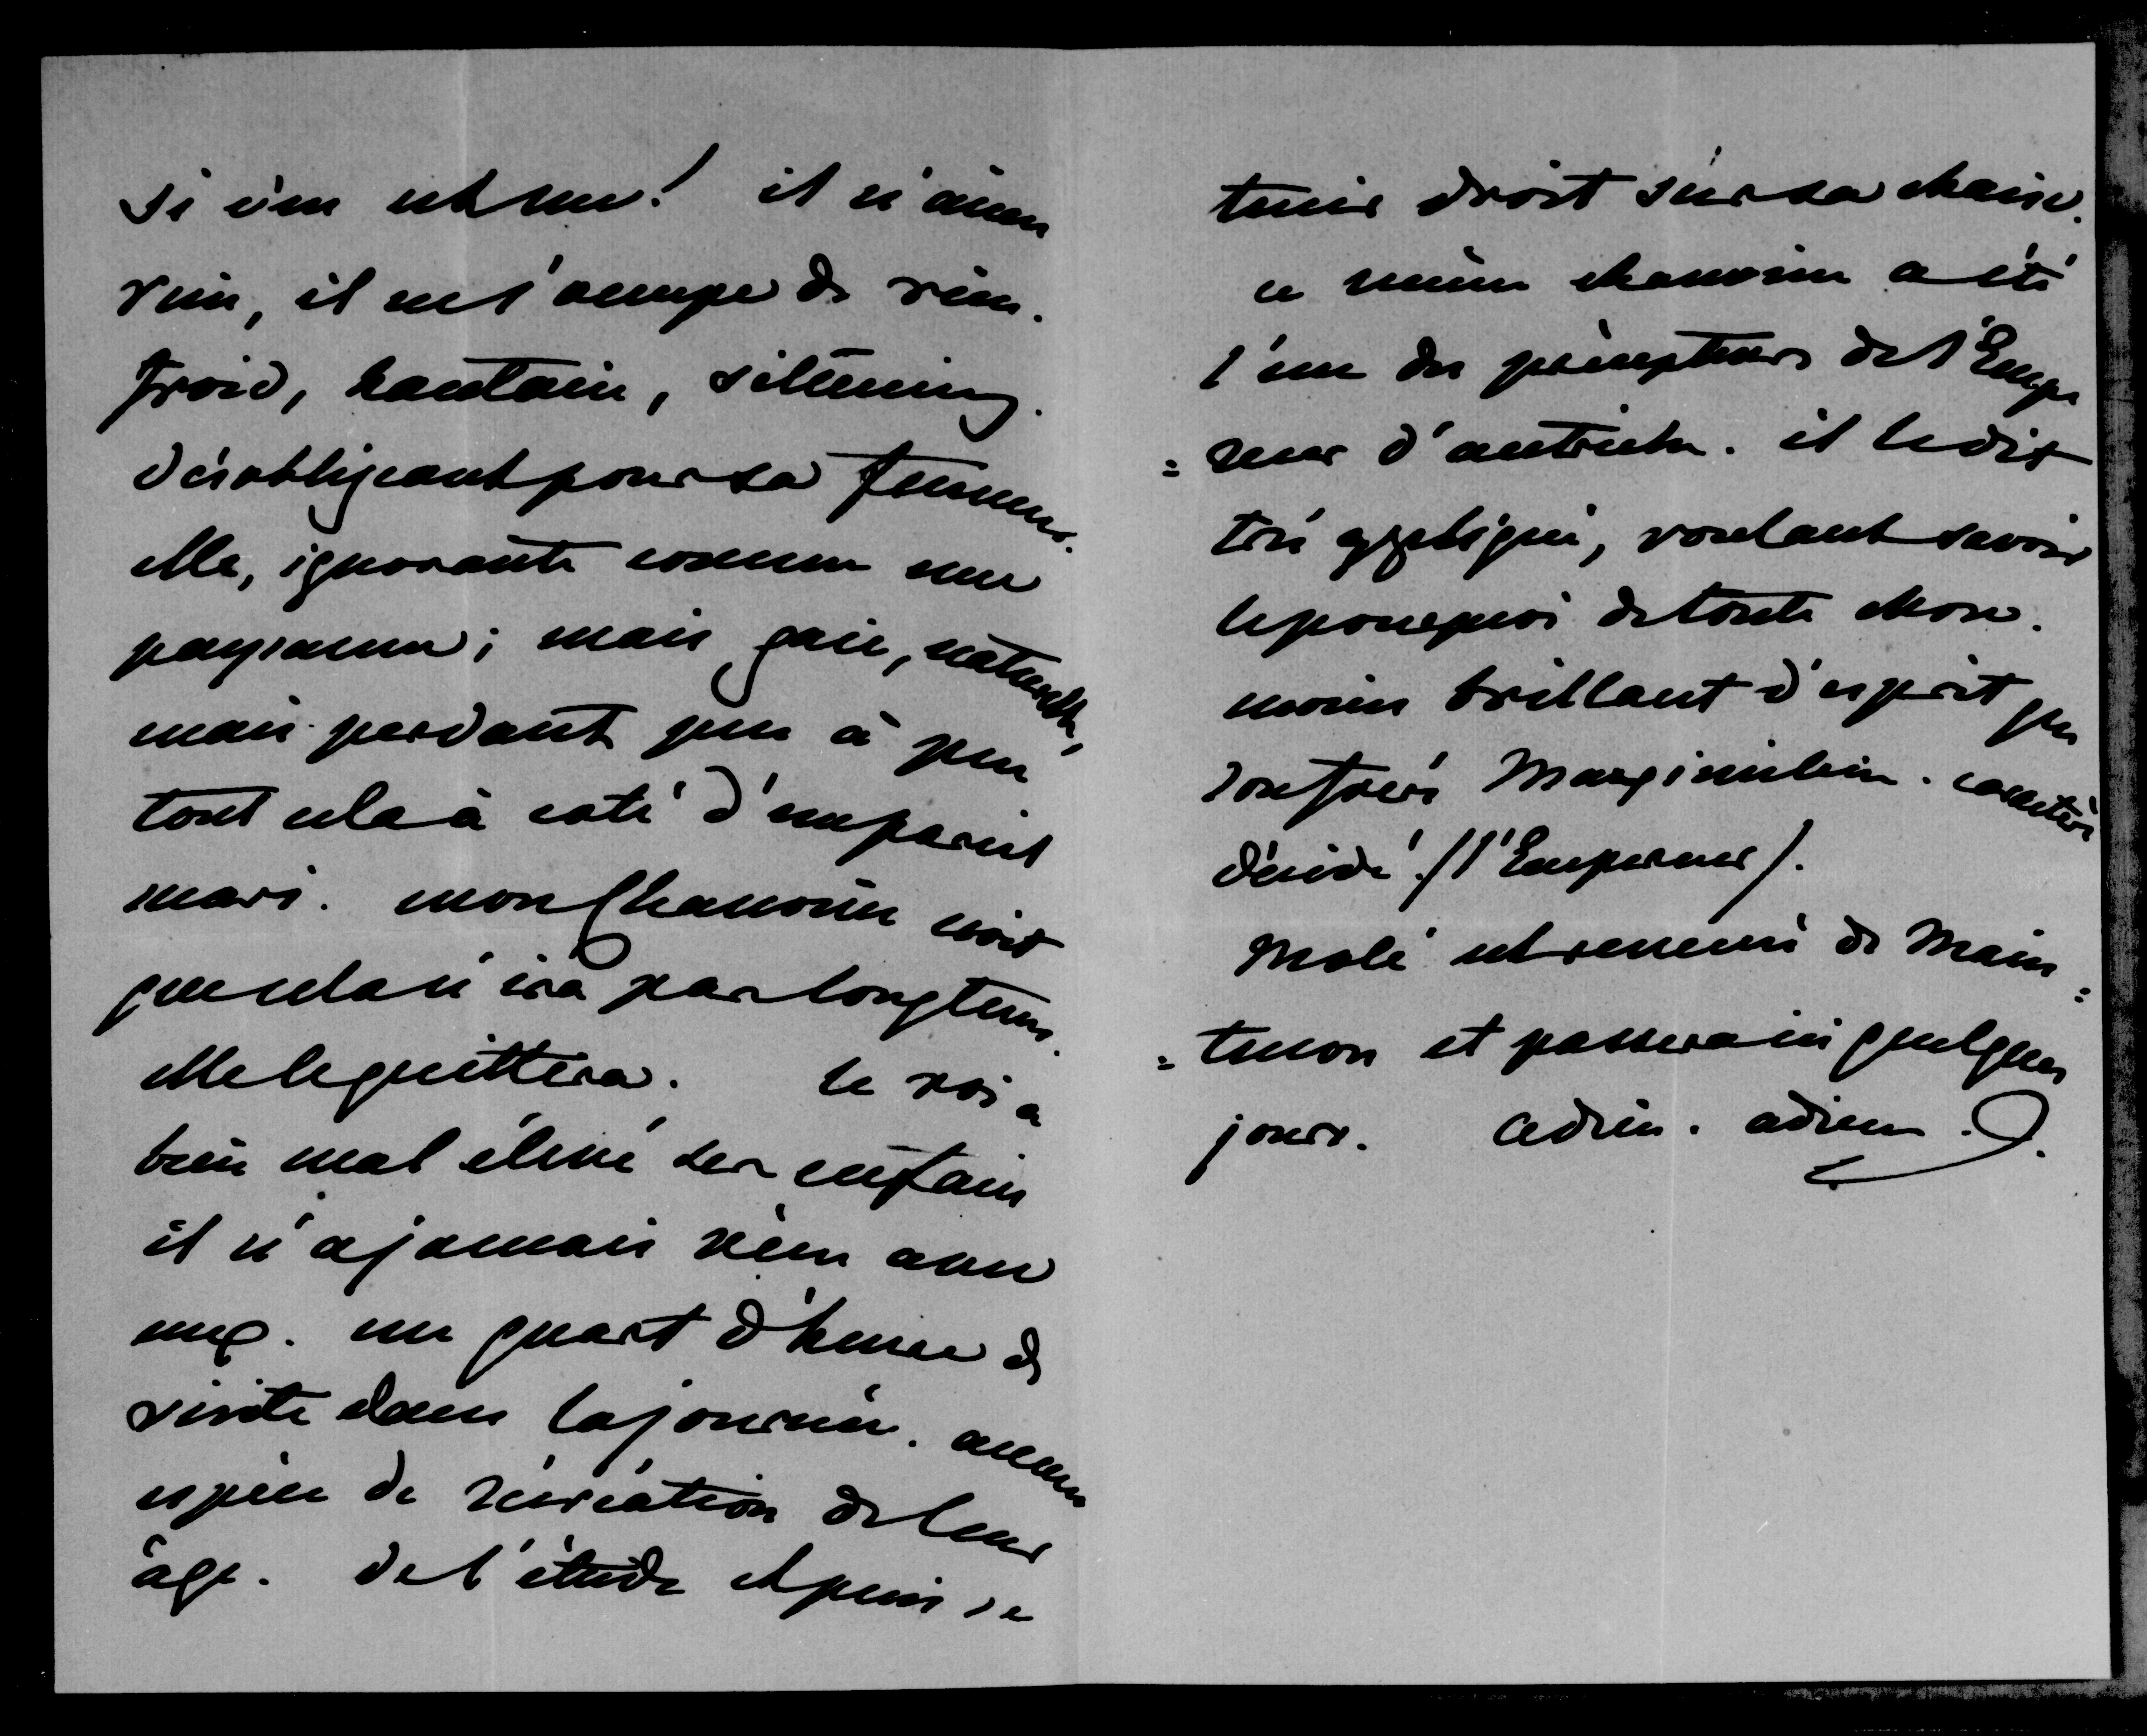 si c'en est une! il n'aime
rien, il ne s'occupe de rien.
froid, hautain, silencieux.
désobligeant pour sa femme.
elle, ignorante comme une
paysanne; mais gaie, naturelle,
mais perdant peu à peu
tout cela à coté d'un pareil
mari. mon Chanoine croit
que cela n'ira pas longtems.
elle le quittera. le roi a
bien mal élevé ses enfans
il n'a jamais vécu avec
eux. un quart d'heure de
visite dans la journée. aucune
espèce de récréation de leur
âge. de l'étude et puis se
tenir droit sur sa chaise.
ce même chanoine a été
l'un des précepteurs de l'Empe
=reur d'autriche. il le dit
très appliqué, voulant savoir
le pourquoi de toute chose.
moins brillant d'esprit que
son frère Maximilien. caractère
décidé (l'Empereur).
Molé est revenu de Main=
=tenon et passera ici quelques
jours. adieu. adieu.